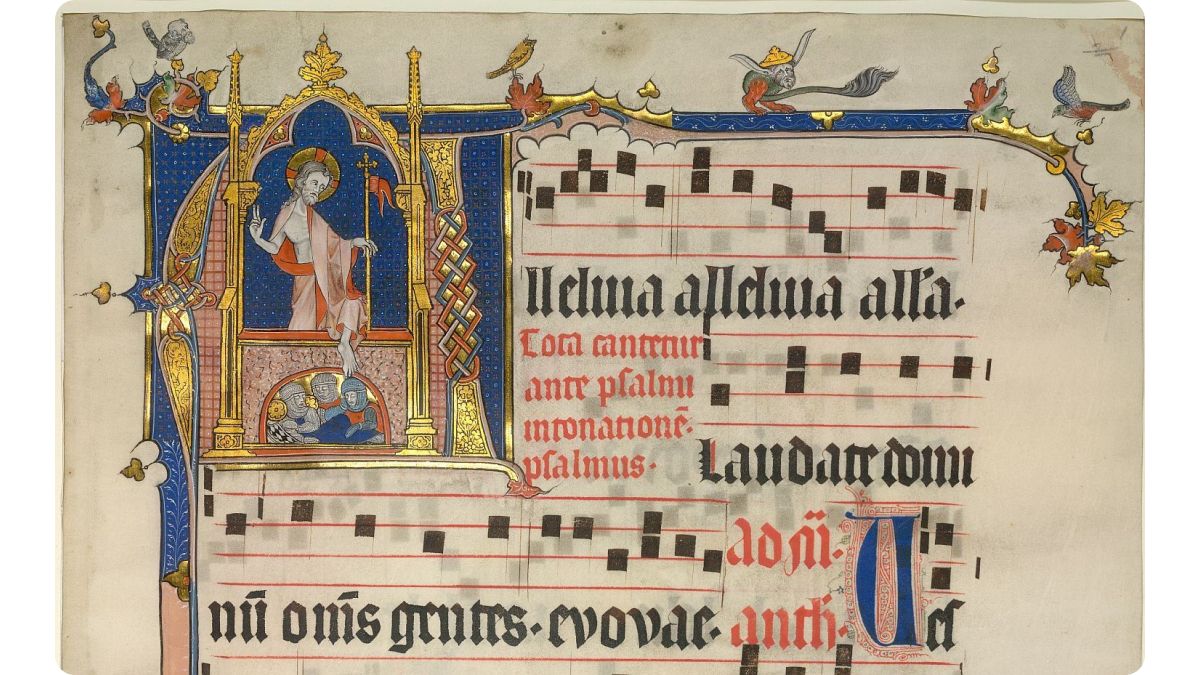 Alleluia alleluia all'a.
Tota cantetur
ante psalmi
intonationē.
psalmus.
Laudate domi
ad m̄.
nū om̄s gentes. evovae. anth. Ves